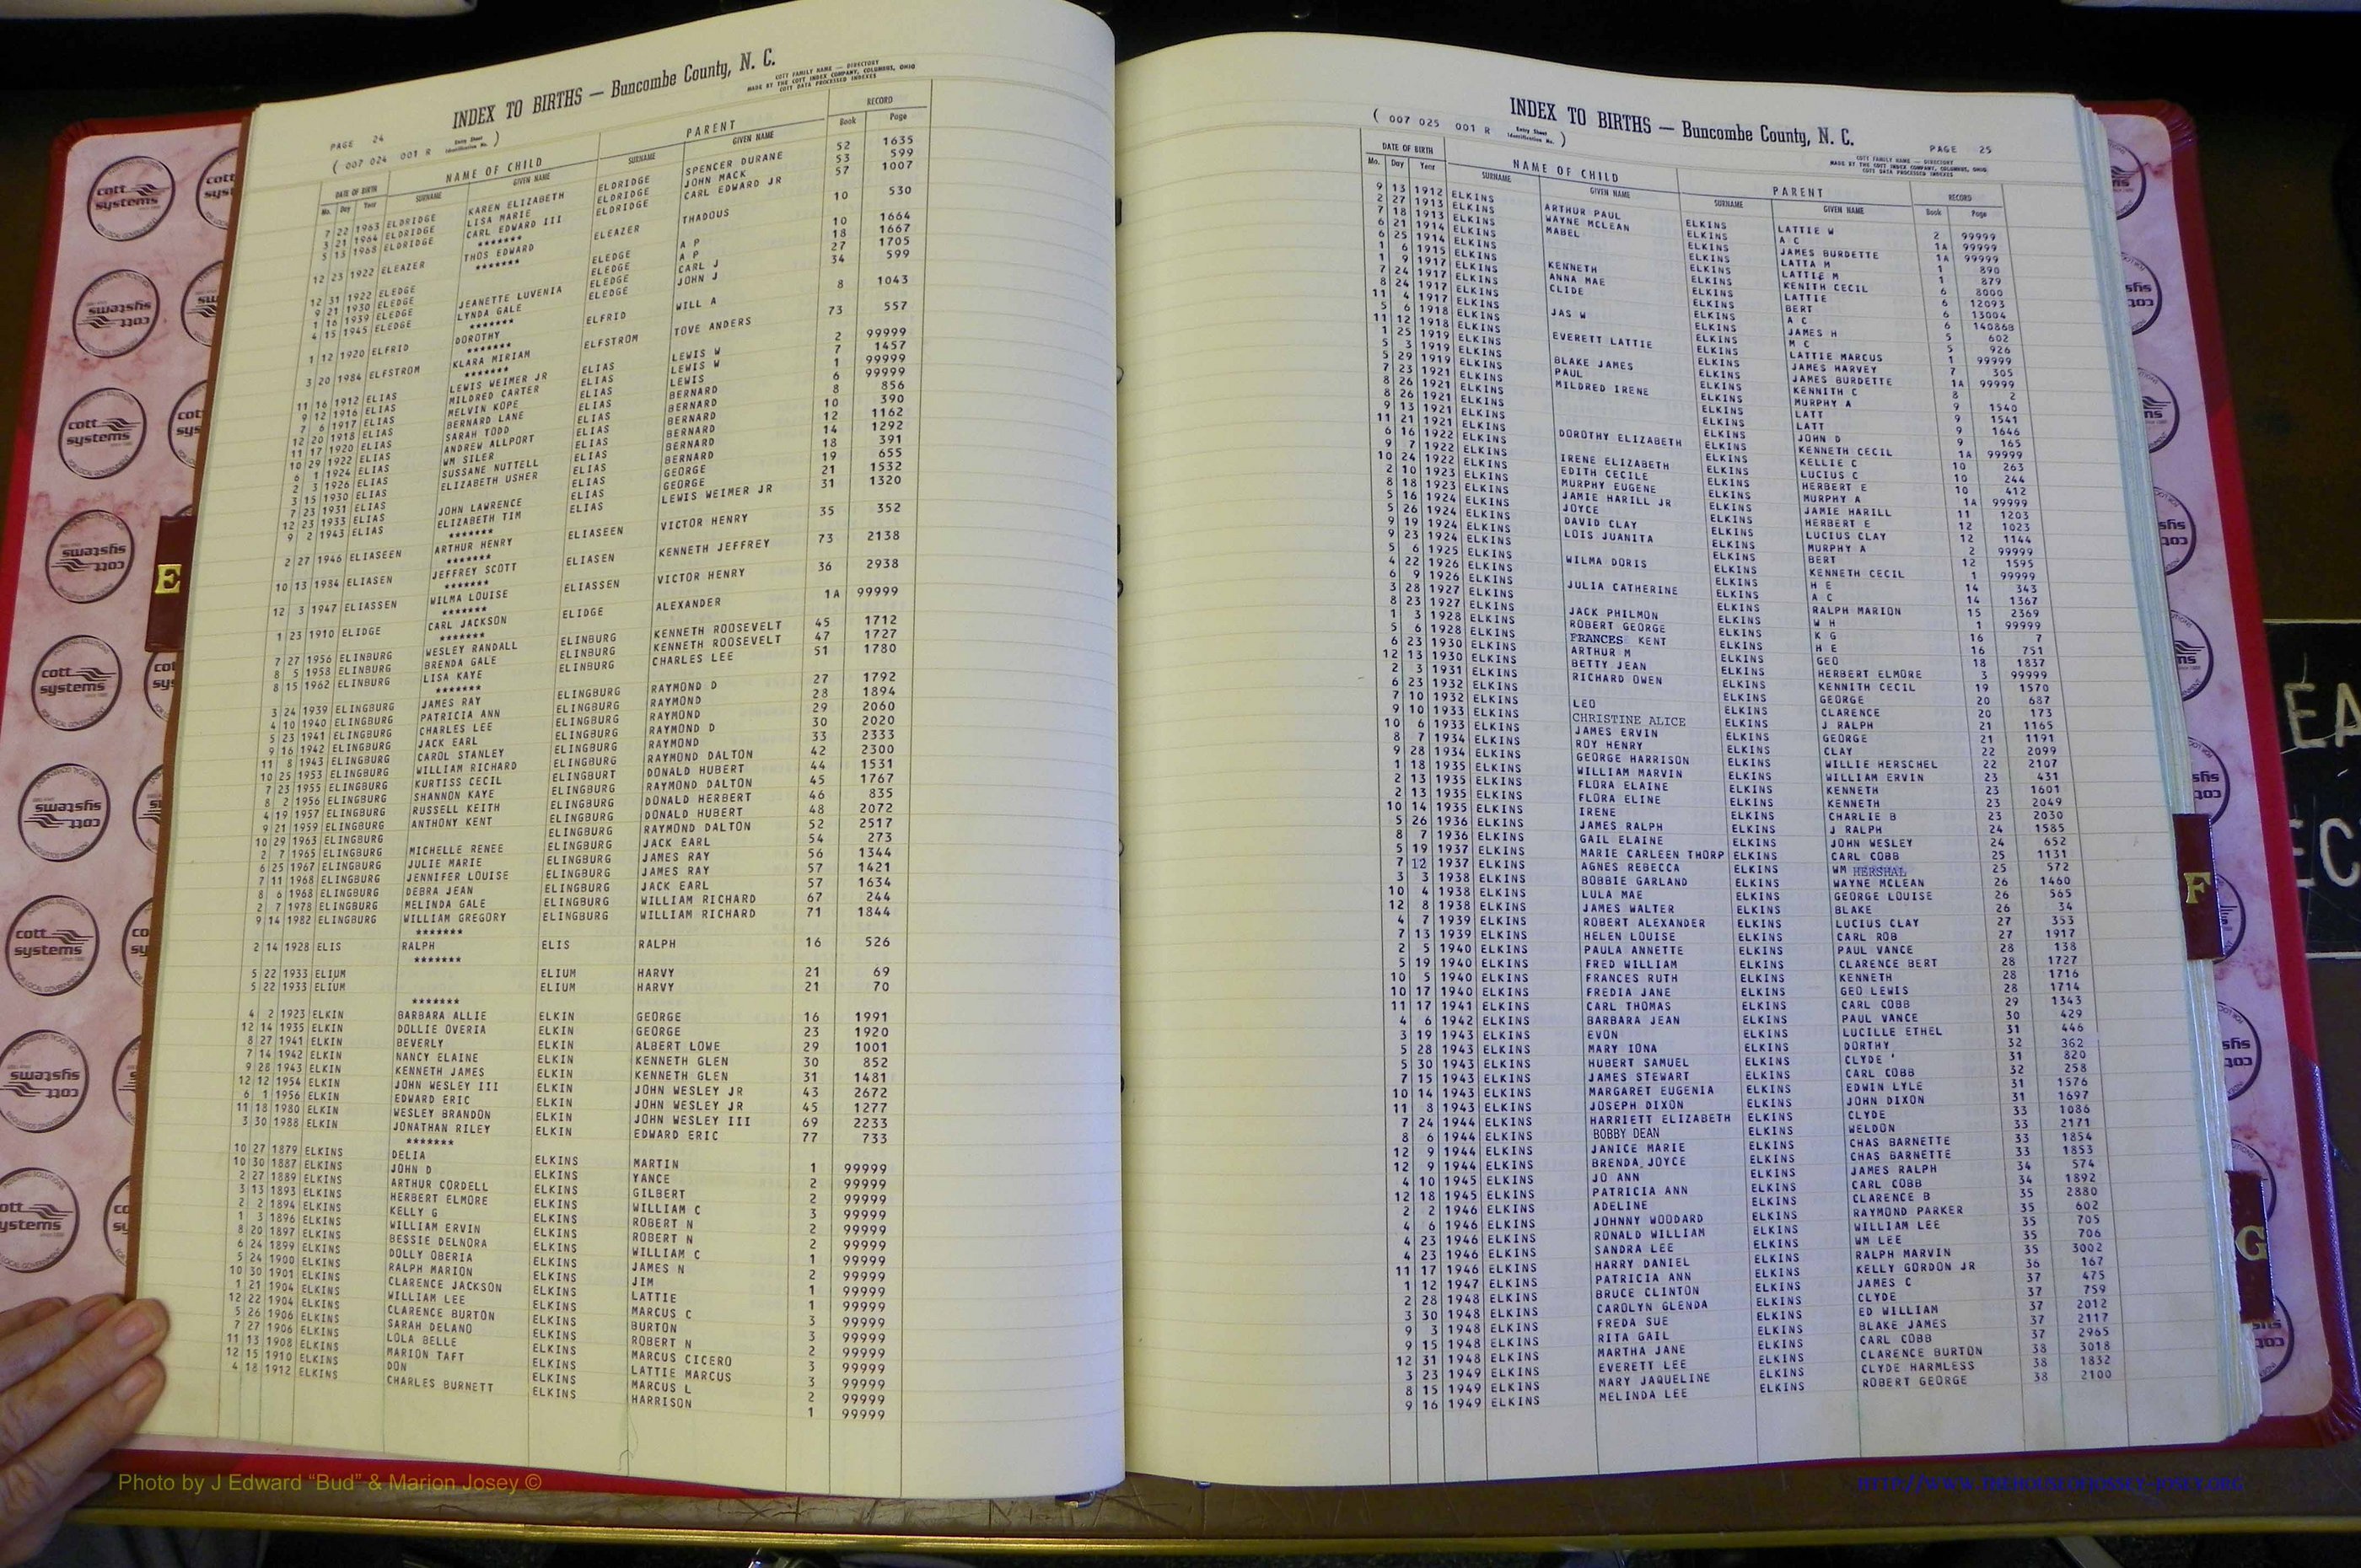 INDEX TO BIRTHS — Buncombe County, N. C.
COTT FAMILY NAME — DIRECTORY
MADE BY THE COTT INDEX COMPANY, COLUMBUS, OHIO
COTT DATA PROCESSED INDEXES
PAGE 24
( 007 024 001 R Entry Sheet Identification No. )
DATE OF BIRTH NAME OF CHILD PARENT RECORD
Mo. Day Year SURNAME GIVEN NAME SURNAME GIVEN NAME Book Page
7 22 1963 ELDRIDGE KAREN ELIZABETH ELDRIDGE SPENCER DURANE 52 1635
3 21 1964 ELDRIDGE LISA MARIE ELDRIDGE JOHN MACK 53 599
5 13 1968 ELDRIDGE CARL EDWARD III ELDRIDGE CARL EDWARD JR 57 1007
*******
12 23 1922 ELEAZER THOS EDWARD ELEAZER THADOUS 10 530
*******
12 31 1922 ELEDGE ELEDGE A P 10 1664
9 21 1930 ELEDGE ELEDGE A P 18 1667
1 16 1939 ELEDGE JEANETTE LUVENIA ELEDGE CARL J 27 1705
4 15 1945 ELEDGE LYNDA GALE ELEDGE JOHN J 34 599
*******
1 12 1920 ELFRID DOROTHY ELFRID WILL A 8 1043
*******
3 20 1984 ELFSTROM KLARA MIRIAM ELFSTROM TOVE ANDERS 73 557
*******
11 16 1912 ELIAS LEWIS WEIMER JR ELIAS LEWIS W 2 99999
9 12 1916 ELIAS MILDRED CARTER ELIAS LEWIS W 7 1457
7 6 1917 ELIAS MELVIN KOPE ELIAS LEWIS 1 99999
12 20 1918 ELIAS BERNARD LANE ELIAS BERNARD 6 99999
11 17 1920 ELIAS SARAH TODD ELIAS BERNARD 8 856
10 29 1922 ELIAS ANDREW ALLPORT ELIAS BERNARD 10 390
6 1 1924 ELIAS WM SILER ELIAS BERNARD 12 1162
2 3 1926 ELIAS SUSSANE NUTTELL ELIAS BERNARD 14 1292
3 15 1930 ELIAS ELIZABETH USHER ELIAS BERNARD 18 391
7 23 1931 ELIAS ELIAS GEORGE 19 655
12 23 1933 ELIAS JOHN LAWRENCE ELIAS GEORGE 21 1532
9 2 1943 ELIAS ELIZABETH TIM ELIAS LEWIS WEIMER JR 31 1320
*******
2 27 1946 ELIASEEN ARTHUR HENRY ELIASEEN VICTOR HENRY 35 352
*******
10 13 1984 ELIASEN JEFFREY SCOTT ELIASEN KENNETH JEFFREY 73 2138
*******
12 3 1947 ELIASSEN WILMA LOUISE ELIASSEN VICTOR HENRY 36 2938
*******
1 23 1910 ELIDGE CARL JACKSON ELIDGE ALEXANDER 1A 99999
*******
7 27 1956 ELINBURG WESLEY RANDALL ELINBURG KENNETH ROOSEVELT 45 1712
8 5 1958 ELINBURG BRENDA GALE ELINBURG KENNETH ROOSEVELT 47 1727
8 15 1962 ELINBURG LISA KAYE ELINBURG CHARLES LEE 51 1780
*******
3 24 1939 ELINGBURG JAMES RAY ELINGBURG RAYMOND D 27 1792
4 10 1940 ELINGBURG PATRICIA ANN ELINGBURG RAYMOND 28 1894
5 23 1941 ELINGBURG CHARLES LEE ELINGBURG RAYMOND 29 2060
9 16 1942 ELINGBURG JACK EARL ELINGBURG RAYMOND D 30 2020
11 8 1943 ELINGBURG CAROL STANLEY ELINGBURG RAYMOND 33 2333
10 25 1953 ELINGBURG WILLIAM RICHARD ELINGBURG RAYMOND DALTON 42 2300
7 23 1955 ELINGBURG KURTISS CECIL ELINGBURT DONALD HUBERT 44 1531
8 2 1956 ELINGBURG SHANNON KAYE ELINGBURG RAYMOND DALTON 45 1767
4 19 1957 ELINGBURG RUSSELL KEITH ELINGBURG DONALD HERBERT 46 835
9 21 1959 ELINGBURG ANTHONY KENT ELINGBURG DONALD HUBERT 48 2072
10 29 1963 ELINGBURG ELINGBURG RAYMOND DALTON 52 2517
2 7 1965 ELINGBURG MICHELLE RENEE ELINGBURG JACK EARL 54 273
6 25 1967 ELINGBURG JULIE MARIE ELINGBURG JAMES RAY 56 1344
7 11 1968 ELINGBURG JENNIFER LOUISE ELINGBURG JAMES RAY 57 1421
8 6 1968 ELINGBURG DEBRA JEAN ELINGBURG JACK EARL 57 1634
2 7 1978 ELINGBURG MELINDA GALE ELINGBURG WILLIAM RICHARD 67 244
9 14 1982 ELINGBURG WILLIAM GREGORY ELINGBURG WILLIAM RICHARD 71 1844
*******
2 14 1928 ELIS RALPH ELIS RALPH 16 526
*******
5 22 1933 ELIUM ELIUM HARVY 21 69
5 22 1933 ELIUM ELIUM HARVY 21 70
*******
4 2 1923 ELKIN BARBARA ALLIE ELKIN GEORGE 16 1991
12 14 1935 ELKIN DOLLIE OVERIA ELKIN GEORGE 23 1920
8 27 1941 ELKIN BEVERLY ELKIN ALBERT LOWE 29 1001
7 14 1942 ELKIN NANCY ELAINE ELKIN KENNETH GLEN 30 852
9 28 1943 ELKIN KENNETH JAMES ELKIN KENNETH GLEN 31 1481
12 12 1954 ELKIN JOHN WESLEY III ELKIN JOHN WESLEY JR 43 2672
6 1 1956 ELKIN EDWARD ERIC ELKIN JOHN WESLEY JR 45 1277
11 18 1980 ELKIN WESLEY BRANDON ELKIN JOHN WESLEY III 69 2233
3 30 1988 ELKIN JONATHAN RILEY ELKIN EDWARD ERIC 77 733
*******
10 27 1879 ELKINS DELIA ELKINS MARTIN 1 99999
10 30 1887 ELKINS JOHN D ELKINS YANCE 2 99999
2 27 1889 ELKINS ARTHUR CORDELL ELKINS GILBERT 2 99999
3 13 1893 ELKINS HERBERT ELMORE ELKINS WILLIAM C 3 99999
2 2 1894 ELKINS KELLY G ELKINS ROBERT N 2 99999
1 3 1896 ELKINS WILLIAM ERVIN ELKINS ROBERT N 2 99999
8 20 1897 ELKINS BESSIE DELNORA ELKINS WILLIAM C 1 99999
6 24 1899 ELKINS DOLLY OBERIA ELKINS JAMES N 2 99999
5 24 1900 ELKINS RALPH MARION ELKINS JIM 1 99999
10 30 1901 ELKINS CLARENCE JACKSON ELKINS LATTIE 1 99999
1 21 1904 ELKINS WILLIAM LEE ELKINS MARCUS C 3 99999
12 22 1904 ELKINS CLARENCE BURTON ELKINS BURTON 3 99999
5 26 1906 ELKINS SARAH DELANO ELKINS ROBERT N 2 99999
7 27 1906 ELKINS LOLA BELLE ELKINS MARCUS CICERO 3 99999
11 13 1908 ELKINS MARION TAFT ELKINS LATTIE MARCUS 3 99999
12 15 1910 ELKINS DON ELKINS MARCUS L 2 99999
4 18 1912 ELKINS CHARLES BURNETT ELKINS HARRISON 1 99999
INDEX TO BIRTHS — Buncombe County, N. C.
( 007 025 001 R Entry Sheet Identification No. )
PAGE 25
COTT FAMILY NAME — DIRECTORY
MADE BY THE COTT INDEX COMPANY, COLUMBUS, OHIO
COTT DATA PROCESSED INDEXES
DATE OF BIRTH NAME OF CHILD PARENT RECORD
Mo. Day Year SURNAME GIVEN NAME SURNAME GIVEN NAME Book Page
9 13 1912 ELKINS ARTHUR PAUL ELKINS LATTIE W 2 99999
2 27 1913 ELKINS WAYNE MCLEAN ELKINS A C 1A 99999
7 18 1913 ELKINS MABEL ELKINS JAMES BURDETTE 1A 99999
6 21 1914 ELKINS ELKINS LATTA M 1 890
6 25 1914 ELKINS ELKINS LATTIE M 1 879
1 6 1915 ELKINS KENNETH ELKINS KENITH CECIL 6 8000
1 9 1917 ELKINS ANNA MAE ELKINS LATTIE 6 12093
7 24 1917 ELKINS CLIDE ELKINS BERT 6 13004
8 24 1917 ELKINS ELKINS A C 6 14086B
11 4 1917 ELKINS JAS W ELKINS JAMES H 5 602
5 6 1918 ELKINS ELKINS M C 5 926
11 12 1918 ELKINS EVERETT LATTIE ELKINS LATTIE MARCUS 1 99999
1 25 1919 ELKINS ELKINS JAMES HARVEY 7 305
5 3 1919 ELKINS BLAKE JAMES ELKINS JAMES BURDETTE 1A 99999
5 29 1919 ELKINS PAUL ELKINS KENNITH C 8 2
7 23 1921 ELKINS MILDRED IRENE ELKINS MURPHY A 9 1540
8 26 1921 ELKINS ELKINS LATT 9 1541
8 26 1921 ELKINS ELKINS LATT 9 1646
9 13 1921 ELKINS ELKINS JOHN D 9 165
11 21 1921 ELKINS DOROTHY ELIZABETH ELKINS KENNETH CECIL 1A 99999
6 16 1922 ELKINS ELKINS KELLIE C 10 263
9 7 1922 ELKINS IRENE ELIZABETH ELKINS LUCIUS C 10 244
10 24 1922 ELKINS EDITH CECILE ELKINS HERBERT E 10 412
2 10 1923 ELKINS MURPHY EUGENE ELKINS MURPHY A 1A 99999
8 18 1923 ELKINS JAMIE HARILL JR ELKINS JAMIE HARILL 11 1203
5 16 1924 ELKINS JOYCE ELKINS HERBERT E 12 1023
5 26 1924 ELKINS DAVID CLAY ELKINS LUCIUS CLAY 12 1144
9 19 1924 ELKINS LOIS JUANITA ELKINS MURPHY A 2 99999
9 23 1924 ELKINS ELKINS BERT 12 1595
5 6 1925 ELKINS WILMA DORIS ELKINS KENNETH CECIL 1 99999
4 22 1926 ELKINS ELKINS H E 14 343
6 9 1926 ELKINS JULIA CATHERINE ELKINS A C 14 1367
3 28 1927 ELKINS ELKINS RALPH MARION 15 2369
8 23 1927 ELKINS JACK PHILMON ELKINS W H 1 99999
1 3 1928 ELKINS ROBERT GEORGE ELKINS K G 16 7
5 6 1928 ELKINS FRANCES KENT ELKINS H E 16 751
6 23 1930 ELKINS ARTHUR M ELKINS GEO 18 1837
12 13 1930 ELKINS BETTY JEAN ELKINS HERBERT ELMORE 3 99999
2 3 1931 ELKINS RICHARD OWEN ELKINS KENNITH CECIL 19 1570
6 23 1932 ELKINS ELKINS GEORGE 20 687
7 10 1932 ELKINS LEO ELKINS CLARENCE 20 173
9 10 1933 ELKINS CHRISTINE ALICE ELKINS J RALPH 21 1165
10 6 1933 ELKINS JAMES ERVIN ELKINS GEORGE 21 1191
8 7 1934 ELKINS ROY HENRY ELKINS CLAY 22 2099
9 28 1934 ELKINS GEORGE HARRISON ELKINS WILLIE HERSCHEL 22 2107
1 18 1935 ELKINS WILLIAM MARVIN ELKINS WILLIAM ERVIN 23 431
2 13 1935 ELKINS FLORA ELAINE ELKINS KENNETH 23 1601
2 13 1935 ELKINS FLORA ELINE ELKINS KENNETH 23 2049
10 14 1935 ELKINS IRENE ELKINS CHARLIE B 23 2030
5 26 1936 ELKINS JAMES RALPH ELKINS J RALPH 24 1585
8 7 1936 ELKINS GAIL ELAINE ELKINS JOHN WESLEY 24 652
5 19 1937 ELKINS MARIE CARLEEN THORP ELKINS CARL COBB 25 1131
7 12 1937 ELKINS AGNES REBECCA ELKINS WM HERSHAL 25 572
3 3 1938 ELKINS BOBBIE GARLAND ELKINS WAYNE MCLEAN 26 1460
10 4 1938 ELKINS LULA MAE ELKINS GEORGE LOUISE 26 565
12 8 1938 ELKINS JAMES WALTER ELKINS BLAKE 26 34
4 7 1939 ELKINS ROBERT ALEXANDER ELKINS LUCIUS CLAY 27 353
7 13 1939 ELKINS HELEN LOUISE ELKINS CARL ROB 27 1917
2 5 1940 ELKINS PAULA ANNETTE ELKINS PAUL VANCE 28 138
5 19 1940 ELKINS FRED WILLIAM ELKINS CLARENCE BERT 28 1727
10 5 1940 ELKINS FRANCES RUTH ELKINS KENNETH 28 1716
10 17 1940 ELKINS FREDIA JANE ELKINS GEO LEWIS 28 1714
11 17 1941 ELKINS CARL THOMAS ELKINS CARL COBB 29 1343
4 6 1942 ELKINS BARBARA JEAN ELKINS PAUL VANCE 30 429
3 19 1943 ELKINS EVON ELKINS LUCILLE ETHEL 31 446
5 28 1943 ELKINS MARY IONA ELKINS DORTHY 32 362
5 30 1943 ELKINS HUBERT SAMUEL ELKINS CLYDE 31 820
7 15 1943 ELKINS JAMES STEWART ELKINS CARL COBB 32 258
10 14 1943 ELKINS MARGARET EUGENIA ELKINS EDWIN LYLE 31 1576
11 8 1943 ELKINS JOSEPH DIXON ELKINS JOHN DIXON 31 1697
7 24 1944 ELKINS HARRIETT ELIZABETH ELKINS CLYDE 33 1086
8 6 1944 ELKINS BOBBY DEAN ELKINS WELDON 33 2171
12 9 1944 ELKINS JANICE MARIE ELKINS CHAS BARNETTE 33 1854
12 9 1944 ELKINS BRENDA JOYCE ELKINS CHAS BARNETTE 33 1853
4 10 1945 ELKINS JO ANN ELKINS JAMES RALPH 34 574
12 18 1945 ELKINS PATRICIA ANN ELKINS CARL COBB 34 1892
2 2 1946 ELKINS ADELINE ELKINS CLARENCE B 35 2880
4 6 1946 ELKINS JOHNNY WOODARD ELKINS RAYMOND PARKER 35 602
4 23 1946 ELKINS RONALD WILLIAM ELKINS WILLIAM LEE 35 705
4 23 1946 ELKINS SANDRA LEE ELKINS WM LEE 35 706
11 17 1946 ELKINS HARRY DANIEL ELKINS RALPH MARVIN 35 3002
1 12 1947 ELKINS PATRICIA ANN ELKINS KELLY GORDON JR 36 167
2 28 1948 ELKINS BRUCE CLINTON ELKINS JAMES C 37 475
3 30 1948 ELKINS CAROLYN GLENDA ELKINS CLYDE 37 759
9 3 1948 ELKINS FREDA SUE ELKINS ED WILLIAM 37 2012
9 15 1948 ELKINS RITA GAIL ELKINS BLAKE JAMES 37 2117
12 31 1948 ELKINS MARTHA JANE ELKINS CARL COBB 37 2965
3 23 1949 ELKINS EVERETT LEE ELKINS CLARENCE BURTON 38 3018
8 15 1949 ELKINS MARY JAQUELINE ELKINS CLYDE HARMLESS 38 1832
9 16 1949 ELKINS MELINDA LEE ELKINS ROBERT GEORGE 38 2100
E
F
G
cott systems
cott systems
cott systems
cott systems
Photo by J Edward “Bud” & Marion Josey ©
HTTP://WWW.THEHOUSEOFJOSSEY-JOSEY.ORG